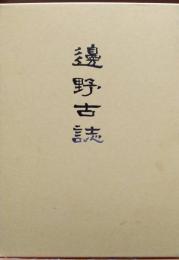 邊野古誌